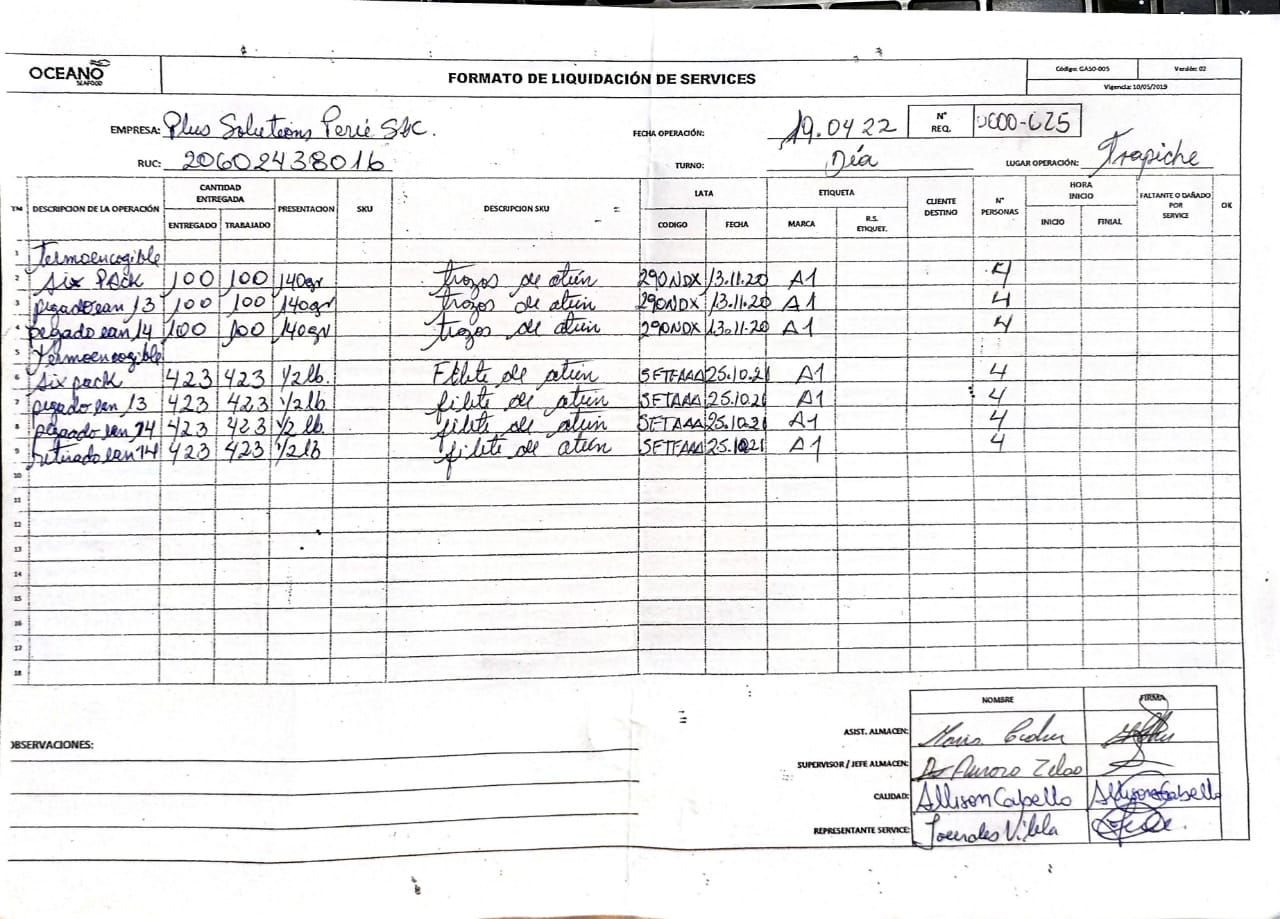 OCEANO
SEAFOOD
FORMATO DE LIQUIDACIÓN DE SERVICES
Código: GASO-005 Versión: 02
Vigencia: 10/05/2019
EMPRESA: Plus Solutions Perú SAC.
FECHA OPERACIÓN: 19.04.22
N° REQ. 0000-625
RUC: 20602438016
TURNO: Día
LUGAR OPERACIÓN: Trapiche
DESCRIPCION DE LA OPERACIÓN CANTIDAD ENTREGADA PRESENTACION SKU DESCRIPCION SKU LATA ETIQUETA CLIENTE DESTINO N° PERSONAS HORA INICIO FALTANTE O DAÑADO POR SERVICE OK
ENTREGADO TRABAJADO CODIGO FECHA MARCA R.S. ETIQUET. INICIO FINIAL
1 Termoencogible
2 Six PACK 100 100 140gr trozos de atún 290NDX 13.11.20 A1 4
3 pegado ean 13 100 100 140gr trozos de atún 290NDX 13.11.20 A1 4
4 pegado ean 14 100 100 140gr trozos de atún 290NDX 13.11.20 A1 4
5 Termoencogible
6 Six pack 423 423 1/2 lb. Filete de atún 25.10.21 A1 4
7 pegado ean 13 423 423 1/2 lb filete de atún 25.10.21 A1 4
8 pegado ean 14 423 423 1/2 lb. filete de atún 25.10.21 A1 4
9 retirado ean 14 423 423 1/2 lb filete de atún 25.10.21 A1 4
10
11
12
13
14
15
16
17
18
NOMBRE FIRMA
OBSERVACIONES:
ASIST. ALMACEN:
SUPERVISOR / JEFE ALMACEN: Aurora
CALIDAD: Allison Cabello Allison Cabello
REPRESENTANTE SERVICE: Lourdes Vilela